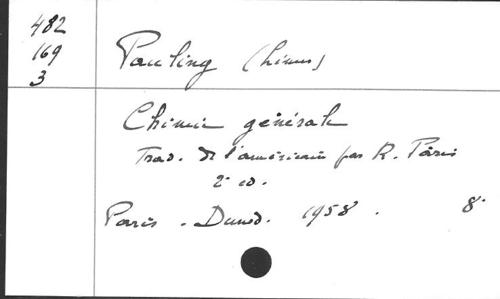 482
169
3
Pauling (Linus)
Chimie générale
Trad. de l'américain par R. Pâris
2e éd.
Paris. Dunod. 1958. 8°